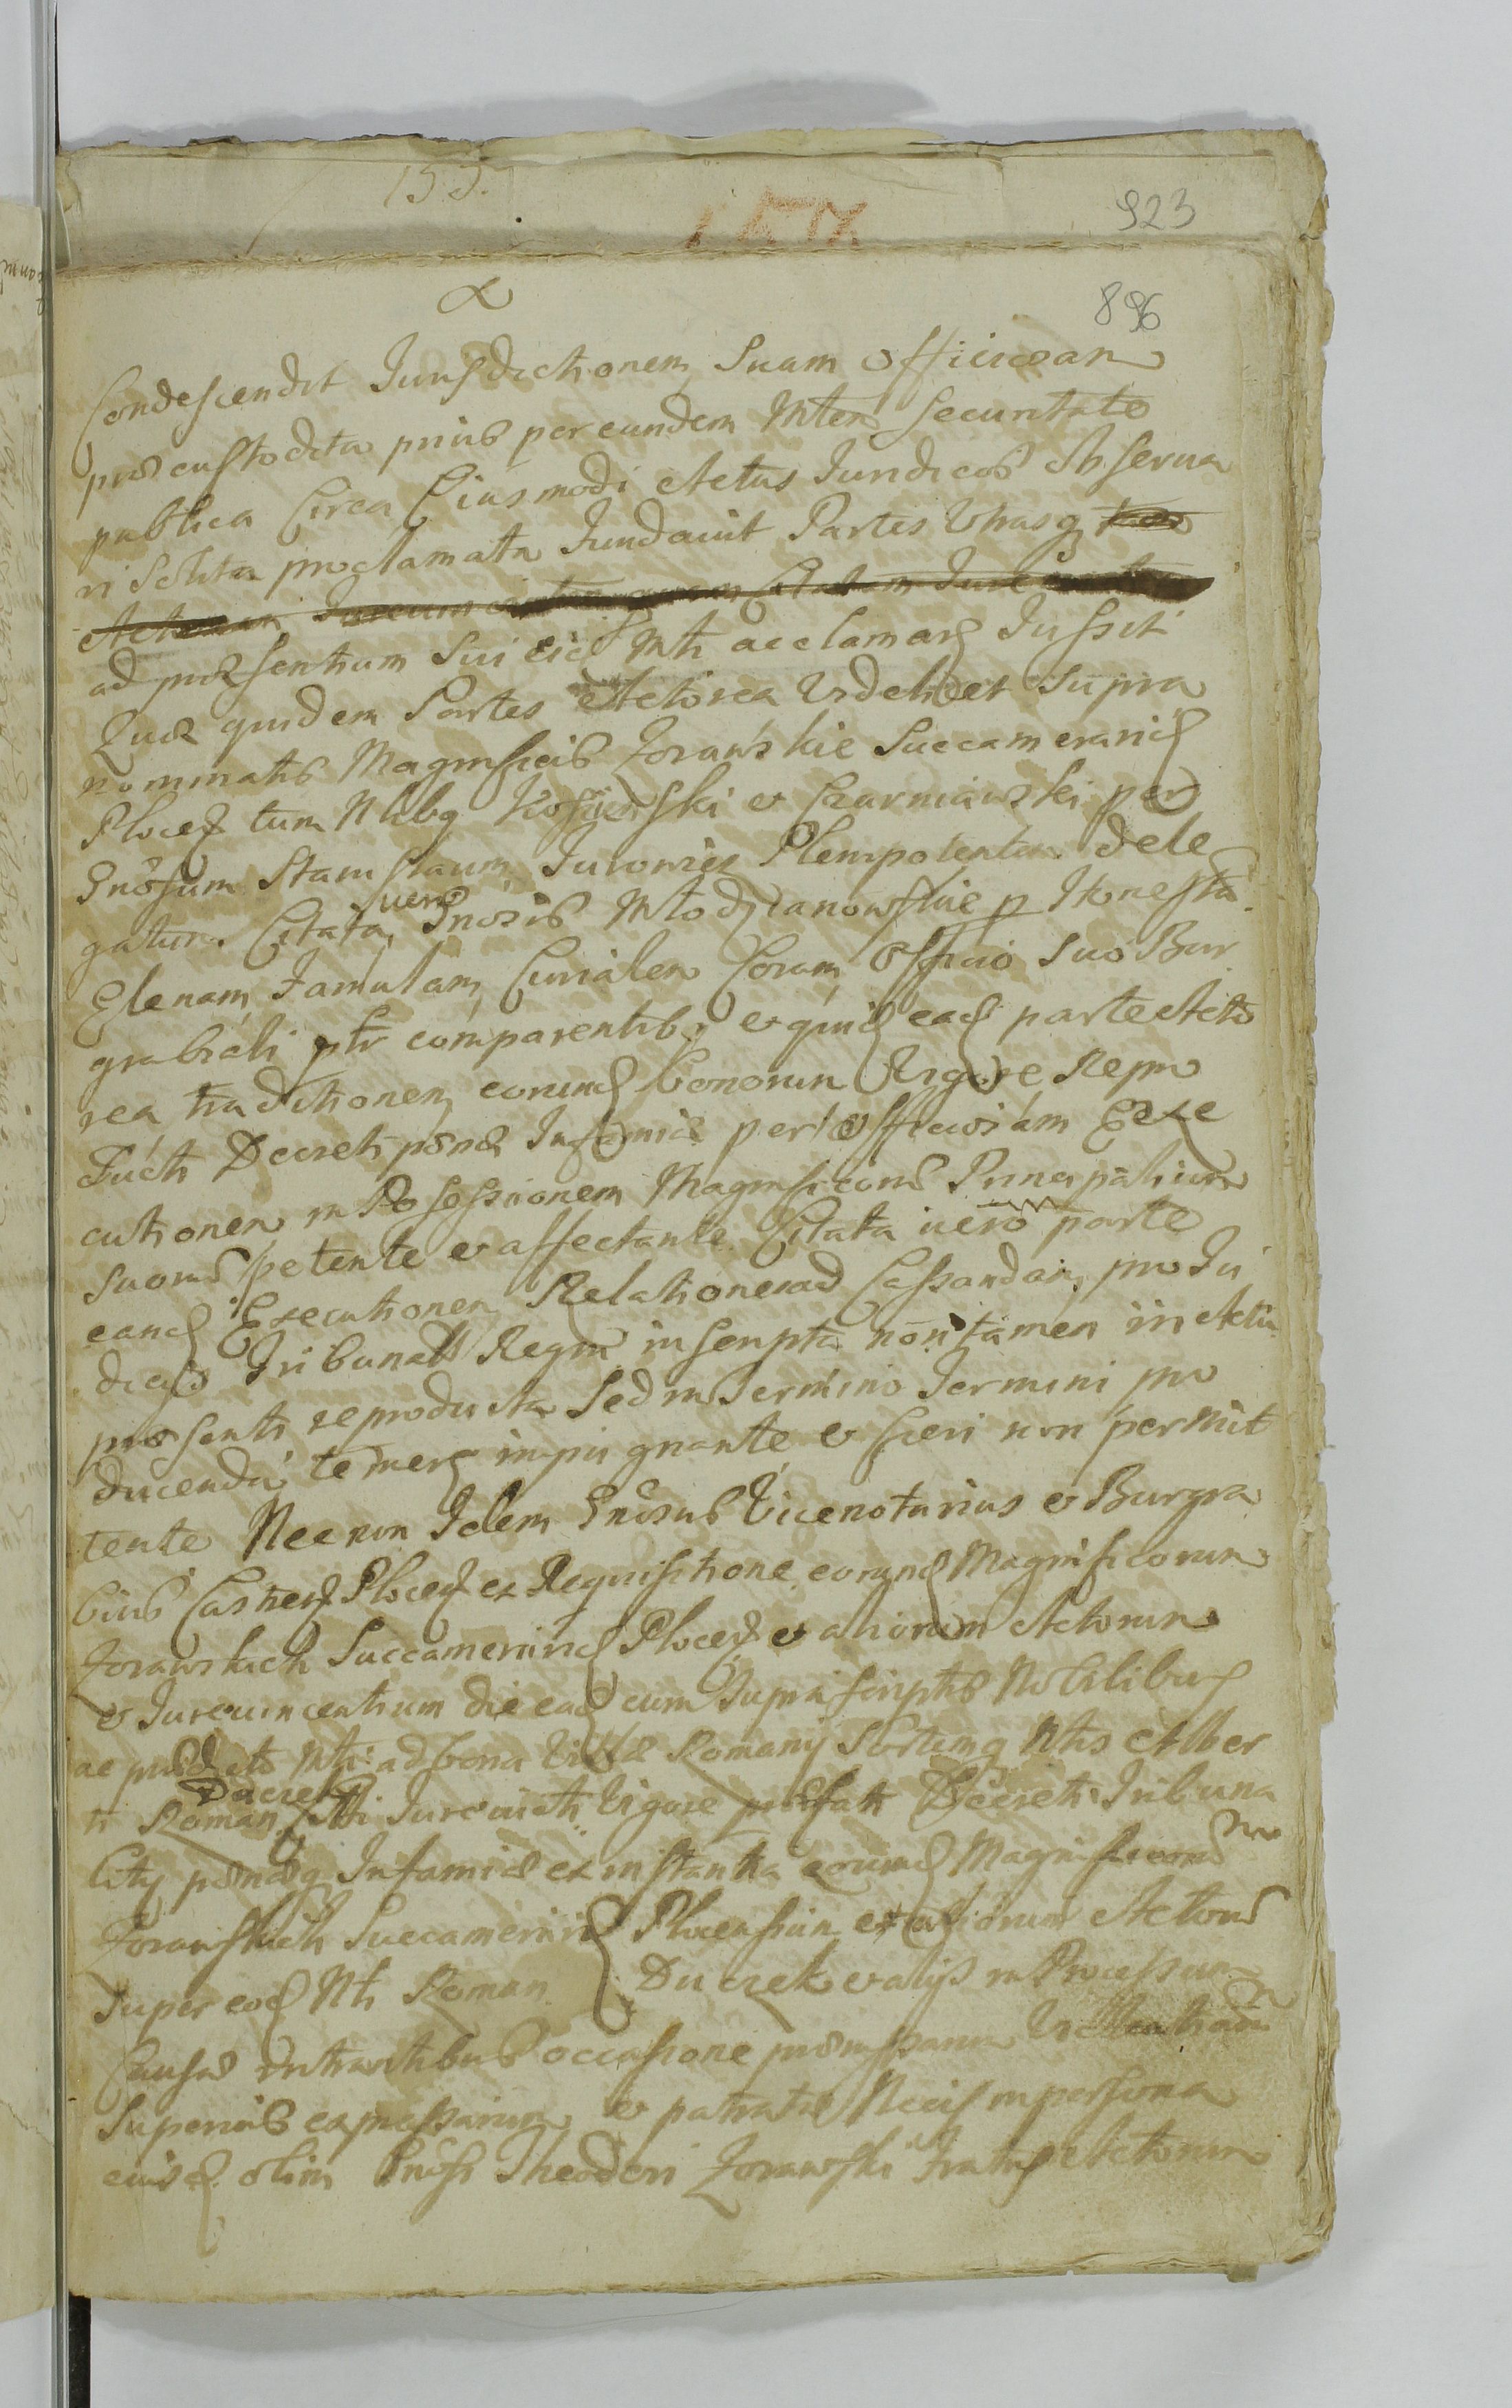 153.
923
896
Condescendit Jurisdictionem Suam Officiosam
præcustodita prius per eundem Mtem Securitate
publica Circa Eiusmodi Actus Juridicos Observa
ri Solita proclamata Fundavit Partes Utrasq
ad præsentium Sui eid Mti acclamare Jussit
Quæ quidem Partes Actorea Videlicet Supra
nominatis Magnificis Zorawskie Succamerarid
Plocen tum Nlibq Kosiorski et Czarniawski per
Gnosum Stanislaum Jurowicz Plenipotentem dele
gatum Citata vero Gnosis Młodzianowskie p Honesta
Elenam Famulam Curialem Coram Officio Suo Bur
grabiali ptr comparentibq et quid ead parte Acto
rea traditionem eorund bonorum Vigore Repro
ducti Decreti pænæ Infamiæ per Officiosam Exe
cutionem in Possessionem Magnificorum Principalium
Suorum petente et affectante Citata vero parte
eand Executionem Relationem ad Cassandam pro Ju
dicio Tribunalis Regni inscripta non tamen in Actu
præsenti reproducta Sed in Termino Termini pro
ducenda temere impugnante et fieri non permit
tente Necnon Idem Gnosus Vicenotarius et Burgra
bius Castren Plocen ex Requisitione eorund Magnificorum
Zorawskich Succamerarid Plocen et aliorum Actorum
et Jurevincentium die ead cum Suprascriptis Nobilibus
ac prædicto Mti ad bona Villæ Romany Sortemq Nlis Alber
Ducrek
ti Roman Jurevicti Vigore præfati Decreti Tribuna
litij pænæq Infamiæ ex instantia eorund Magnificorum
Zorawskich Succamerarid Plocensium et aliorum Actorum
Super eod Nli Roman Ducrek et alijs in Processum
Causæ intrantibus occasione præmissarum
Superius expressarum et patratæ Necis in persona
eiusd olim Gnosi Theodori Zorawski Fratris Actorum